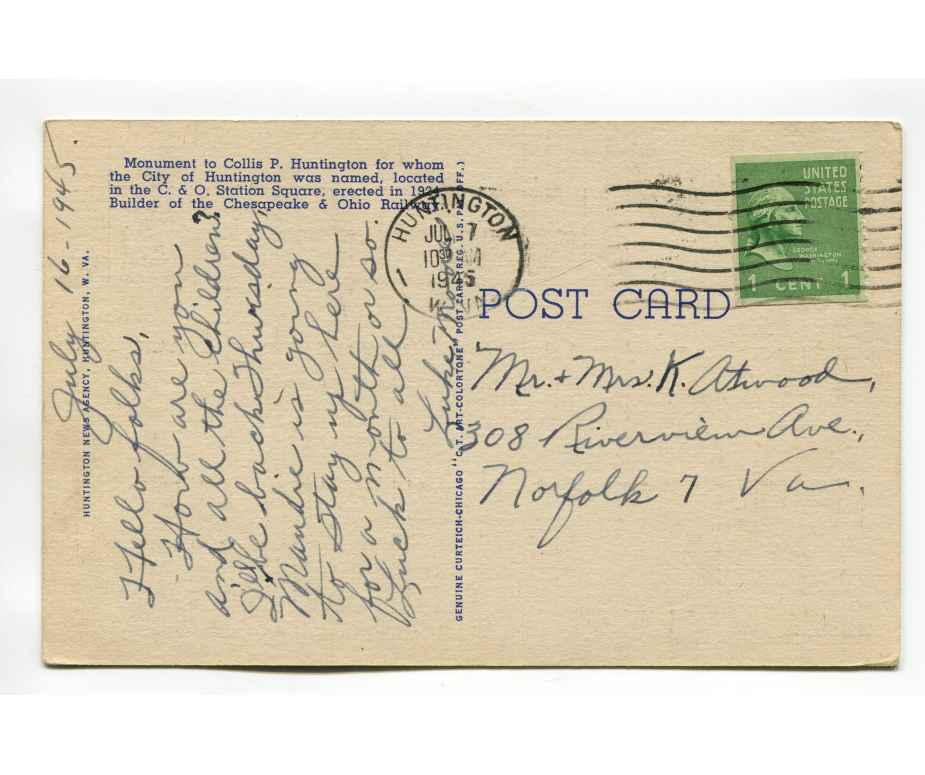 Monument to Collis P. Huntington for whom
the City of Huntington was named, located
in the C. & O. Station Square, erected in 1924.
Builder of the Chesapeake & Ohio Railway.
HUNTINGTON NEWS AGENCY, HUNTINGTON, W. VA.
July 16-1945.
Hello folks,
How are you
and all the children?
I'll be back Thursday,
Maudie is going
to stay up here
for a month or so.
Luck to all
Luke
GENUINE CURTEICH-CHICAGO "C.T. ART-COLORTONE" POST CARD (REG. U.S. PAT. OFF.)
HUNTINGTON
JUL 7
10 AM
1945
W.VA.
UNITED
STATES
POSTAGE
GEORGE
WASHINGTON
1 CENT 1
POST CARD
Mr. + Mrs. K. Atwood,
308 Riverview Ave.,
Norfolk 7 Va.